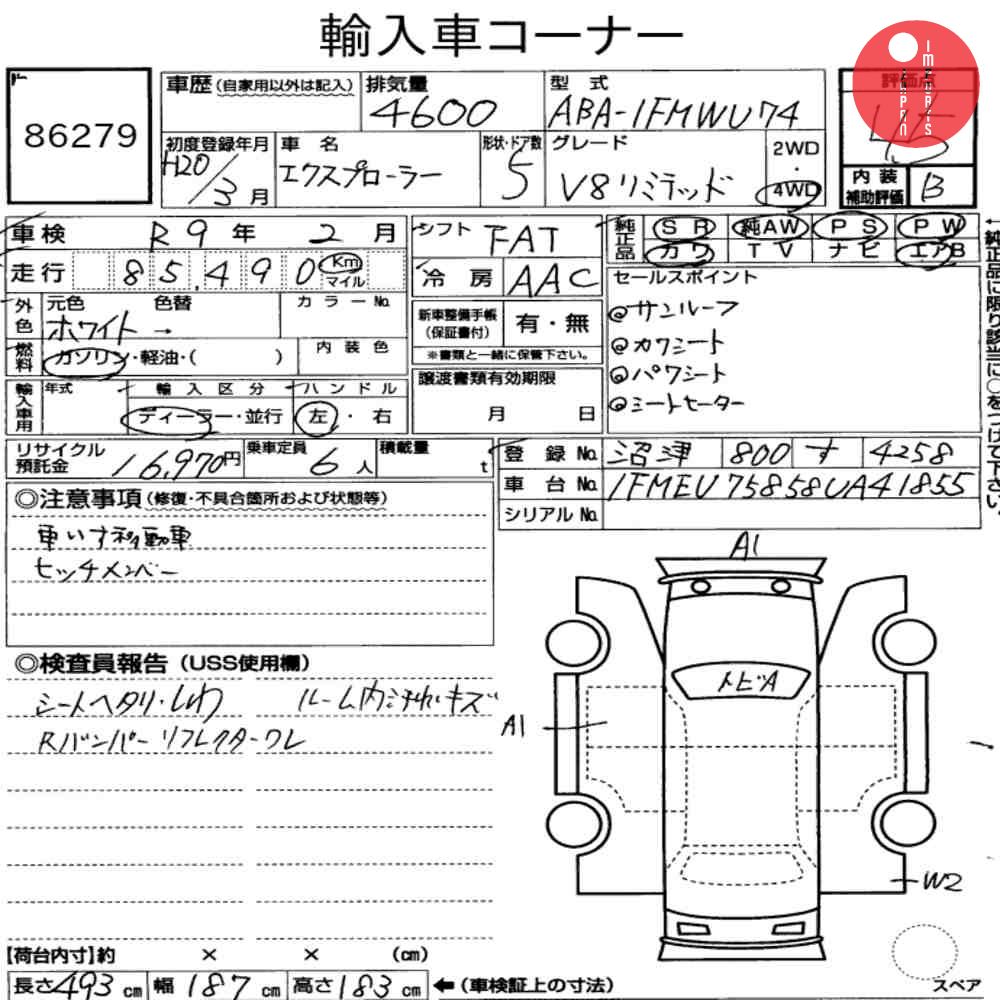 輸入車コーナー
IMPORTS JAPAN
86279
車歴(自家用以外は記入) 排気量 4600 型式 ABA-1FMWU74
評価点 4.5
初度登録年月 H20/3月 車名 エクスプローラー 形状・ドア数 5 グレード V8リミテッド 2WD・4WD
内装補助評価 B
車検 R9年 2月 シフト FAT 純正品 SR 純AW PS PW
走行 85,490 Km マイル 冷房 AAC カワ TV ナビ エアB
外色 元色 ホワイト 色替 → カラーNo. 新車整備手帳(保証書付) 有・無 セールスポイント
燃料 ガソリン・軽油・( ) 内装色 ※書類と一緒に保管下さい。
@サンルーフ
@カワシート
@パワシート
@シートヒーター
輸入車用 年式 輸入区分 ディーラー・並行 ハンドル 左・右 譲渡書類有効期限 月 日
←純正品に限り該当に○をつけて下さい。
リサイクル預託金 16,970円 乗車定員 6人 積載量 t 登録No. 沼津 800 す 4258
車台No. 1FMEU75858UA41855
シリアルNo.
◎注意事項(修復・不具合箇所および状態等)
車いす移動車
ヒッチメンバー
◎検査員報告(USS使用欄)
シートヘタリ・しわ ルーム内汚れキズ
Rバンパーリフレクターワレ
A1
トビA
A1
W2
スペア
【荷台内寸】約 × × (cm)
長さ493cm 幅187cm 高さ183cm ←(車検証上の寸法)